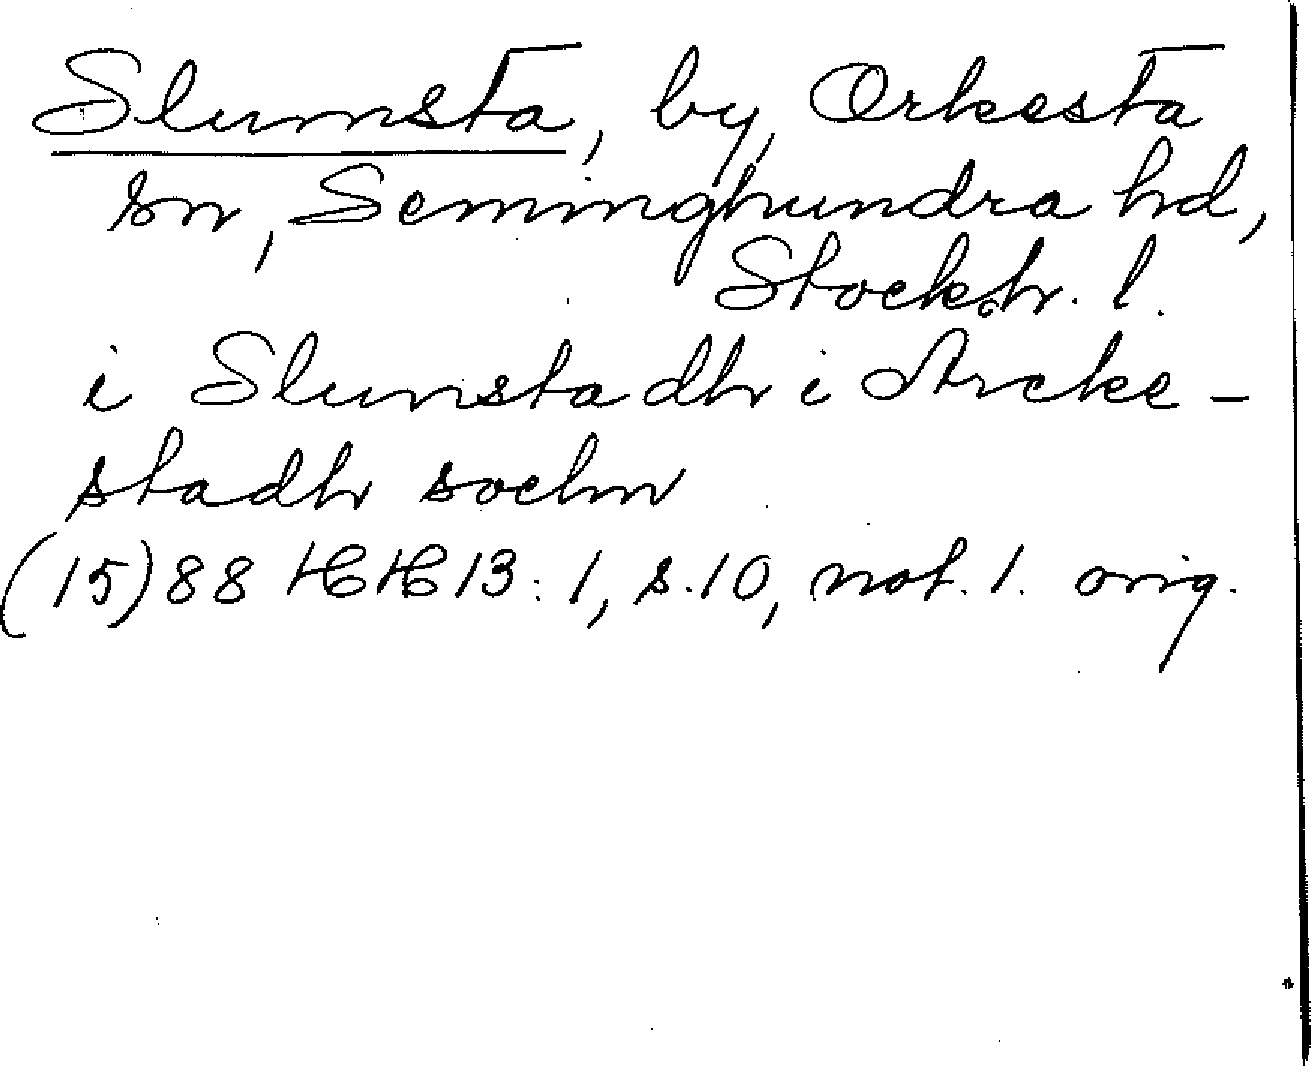 Slumsta, by, Orkesta
sn, Seminghundra hd,
Stockh. l.
i Slumstadh i Arcke-
stadh sochn
(15)88 HH 13:1, s. 10, not. 1. orig.